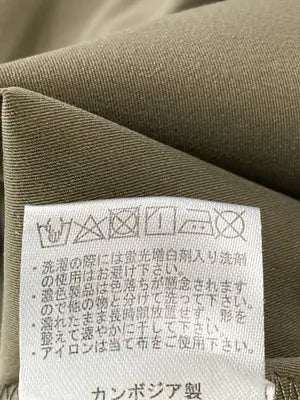 ・洗濯の際には蛍光増白剤入り洗剤
の使用はお避け下さい。
・濃色製品は色落ちが懸念されます
ので他の物と分けて洗って下さい。
・濡れたまま長時間放置せず、形を
整えて速やかに干して下さい。
・アイロンは当て布をご使用下さい。
カンボジア製